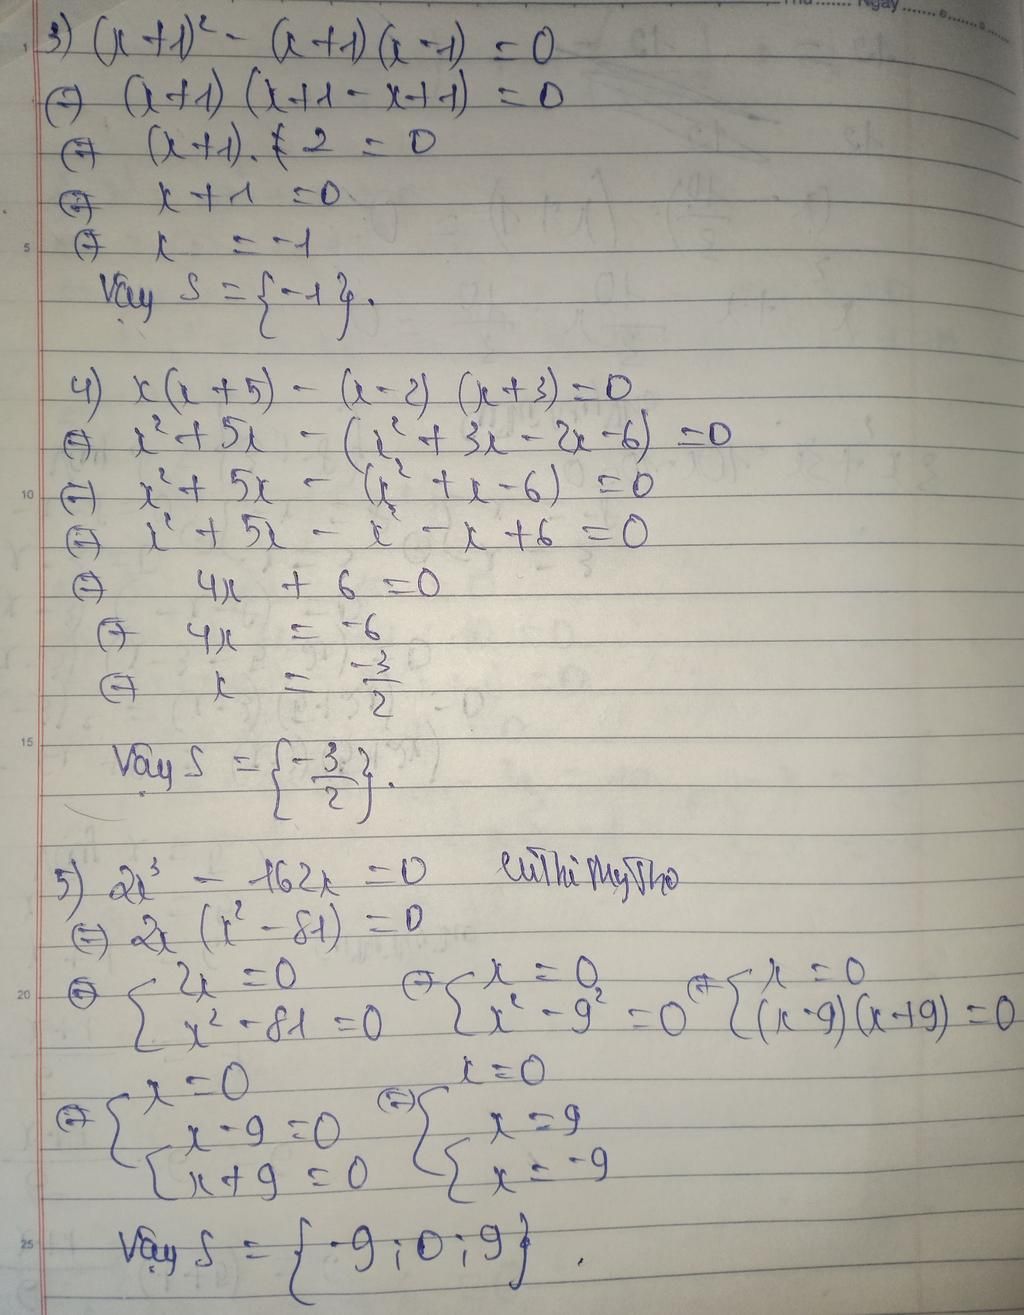 Thứ ....... Ngày ..............
3) (x+1)² - (x+1)(x-1) = 0
⇔ (x+1)(x+1-x+1) = 0
⇔ (x+1). 2 = 0
⇔ x+1 = 0
⇔ x = -1
Vậy S = {-1}.
4) x(x+5) - (x-2)(x+3) = 0
⇔ x² + 5x - (x² + 3x - 2x - 6) = 0
⇔ x² + 5x - (x² + x - 6) = 0
⇔ x² + 5x - x² - x + 6 = 0
⇔ 4x + 6 = 0
⇔ 4x = -6
⇔ x = -3/2
Vậy S = {-3/2}.
5) 2x³ - 162x = 0
⇔ 2x(x² - 81) = 0
⇔ { 2x = 0 ⇔ { x = 0 ⇔ { x = 0
x² - 81 = 0 x² - 9² = 0 (x-9)(x+9) = 0
⇔ { x = 0 ⇔ { x = 0
x - 9 = 0 x = 9
{ x + 9 = 0 { x = -9
Vậy S = {-9; 0; 9}.